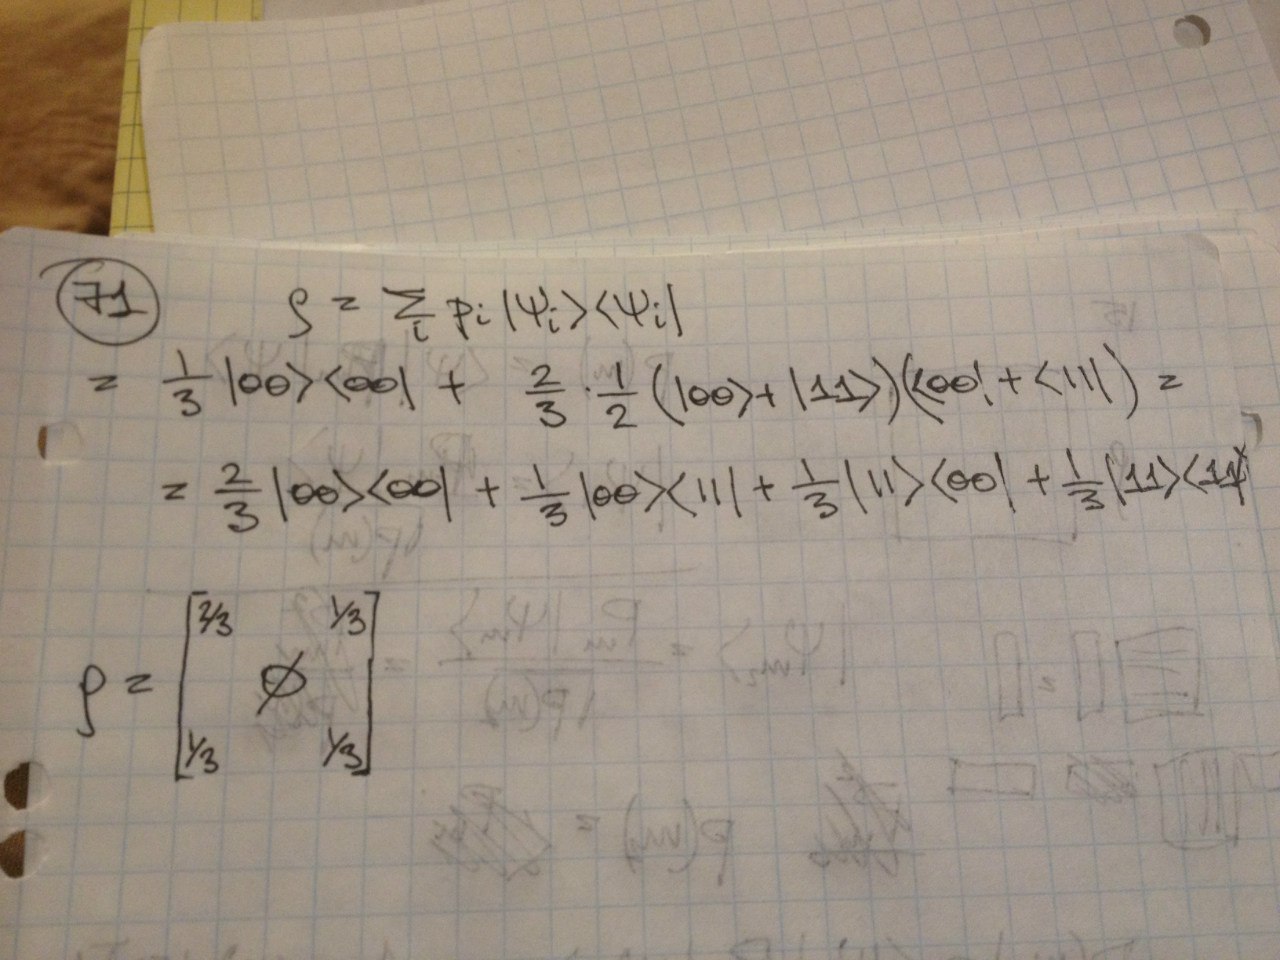 71 ρ = Σ_i p_i |Ψ_i><Ψ_i|
= 1/3 |00><00| + 2/3 · 1/2 (|00> + |11>)(<00| + <11|) =
= 2/3 |00><00| + 1/3 |00><11| + 1/3 |11><00| + 1/3 |11><11|
2/3 1/3
ρ = [ ∅ ]
1/3 1/3